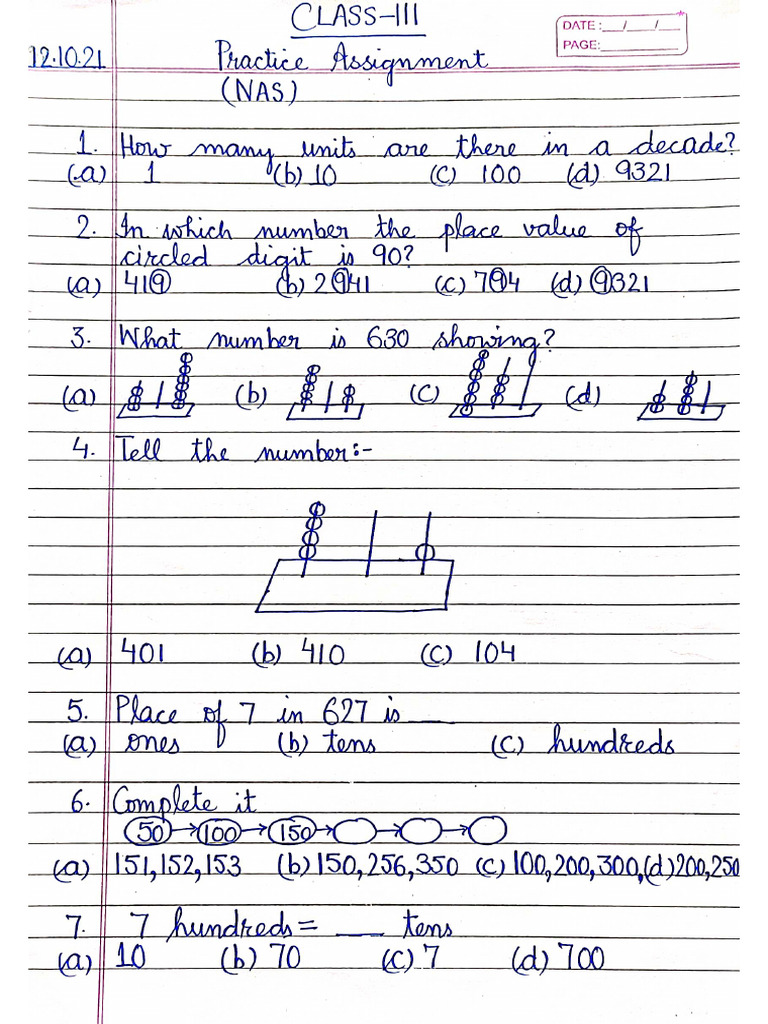 CLASS-III
DATE: __/__/__
PAGE: ______
12.10.21 Practice Assignment
(NAS)
1. How many units are there in a decade?
(a) 1 (b) 10 (c) 100 (d) 9321
2. In which number the place value of
circled digit is 90?
(a) 419 (b) 2941 (c) 794 (d) 9321
3. What number is 630 showing?
(a) (b) (c) (d)
4. Tell the number:-
(a) 401 (b) 410 (c) 104
5. Place of 7 in 627 is ___
(a) ones (b) tens (c) hundreds
6. Complete it
50→100→150→
(a) 151,152,153 (b) 150,256,350 (c) 100,200,300, (d) 200,250
7. 7 hundreds = ___ tens
(a) 10 (b) 70 (c) 7 (d) 700